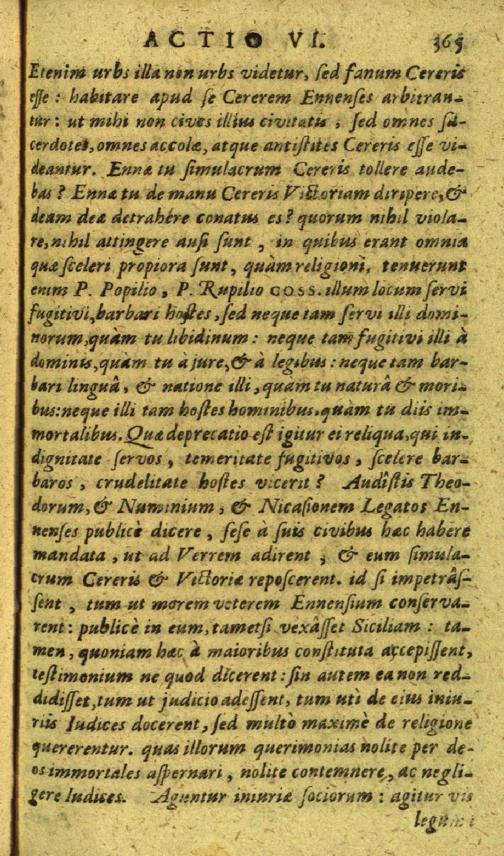 ACTIO VI. 365
Etenim urbs illa non urbs videtur, sed fanum Cereris
esse: habitare apud se Cererem Ennenses arbitran-
tur: ut mihi non cives illius civitatis, sed omnes sa-
cerdotes, omnes accolæ, atque antistites Cereris esse vi-
deantur. Ennæ tu simulacrum Cereris tollere aude-
bas? Ennæ tu de manu Cereris Victoriam diripere, &
deam deæ detrahere conatus es? quorum nihil viola-
re, nihil attingere ausi sunt, in quibus erant omnia
quæ sceleri propiora sunt, quàm religioni. tenuerunt
enim P. Popilio, P. Rupilio COSS. illum locum servi
fugitivi, barbari hostes, sed neque tam servi illi domi-
norum, quàm tu libidinum: neque tam fugitivi illi à
dominis, quàm tu à jure, & à legibus: neque tam bar-
bari linguâ, & natione illi, quàm tu naturâ & mori-
bus: neque illi tam hostes hominibus. quàm tu diis im-
mortalibus. Quæ deprecatio est igitur ei reliqua, qui in-
dignitate servos, temeritate fugitivos, scelere bar-
baros, crudelitate hostes vicerit? Audîstis Theo-
dorum, & Numinium, & Nicasionem Legatos En-
nenses publicè dicere, sese à suis civibus hæc habere
mandata, ut ad Verrem adirent, & eum simula-
crum Cereris & Victoriæ reposcerent. id si impetrâs-
sent, tum ut morem veterem Ennensium conserva-
rent: publicè in eum, tametsi vexâsset Siciliam: ta-
men, quoniam hæc à maioribus constituta accepissent,
testimonium ne quod dicerent: sin autem ea non red-
didisset, tum ut judicio adessent, tum uti de eius iniu-
riis Iudices docerent, sed multò maximè de religione
quererentur. quas illorum querimonias nolite per de-
os immortales aspernari, nolite contemnere, ac negli-
gere Iudices. Aguntur iniuriæ sociorum: agitur vis